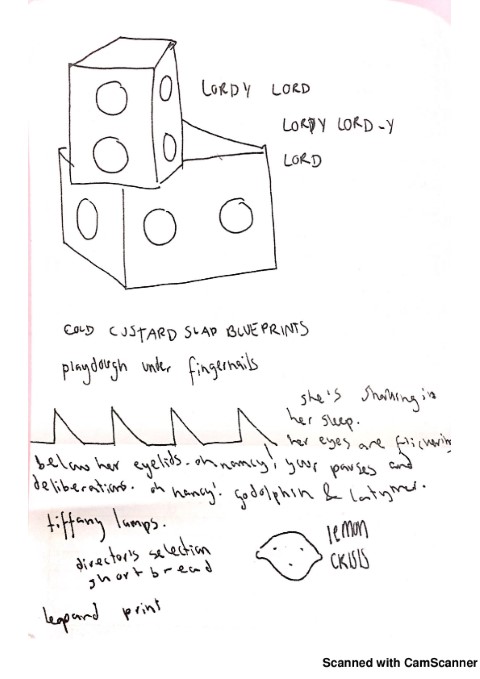 LORDY LORD
LORDY LORD-Y
LORD
COLD CUSTARD SLAP BLUEPRINTS
playdough under fingernails
she's in
her sleep.
her eyes are flickering
below her eyelids. oh nancy! your pauses and
deliberations. oh nancy! godolphin & latymer.
tiffany lamps.
director's selection
shortbread
lemon
CRISIS
leopard print
Scanned with CamScanner